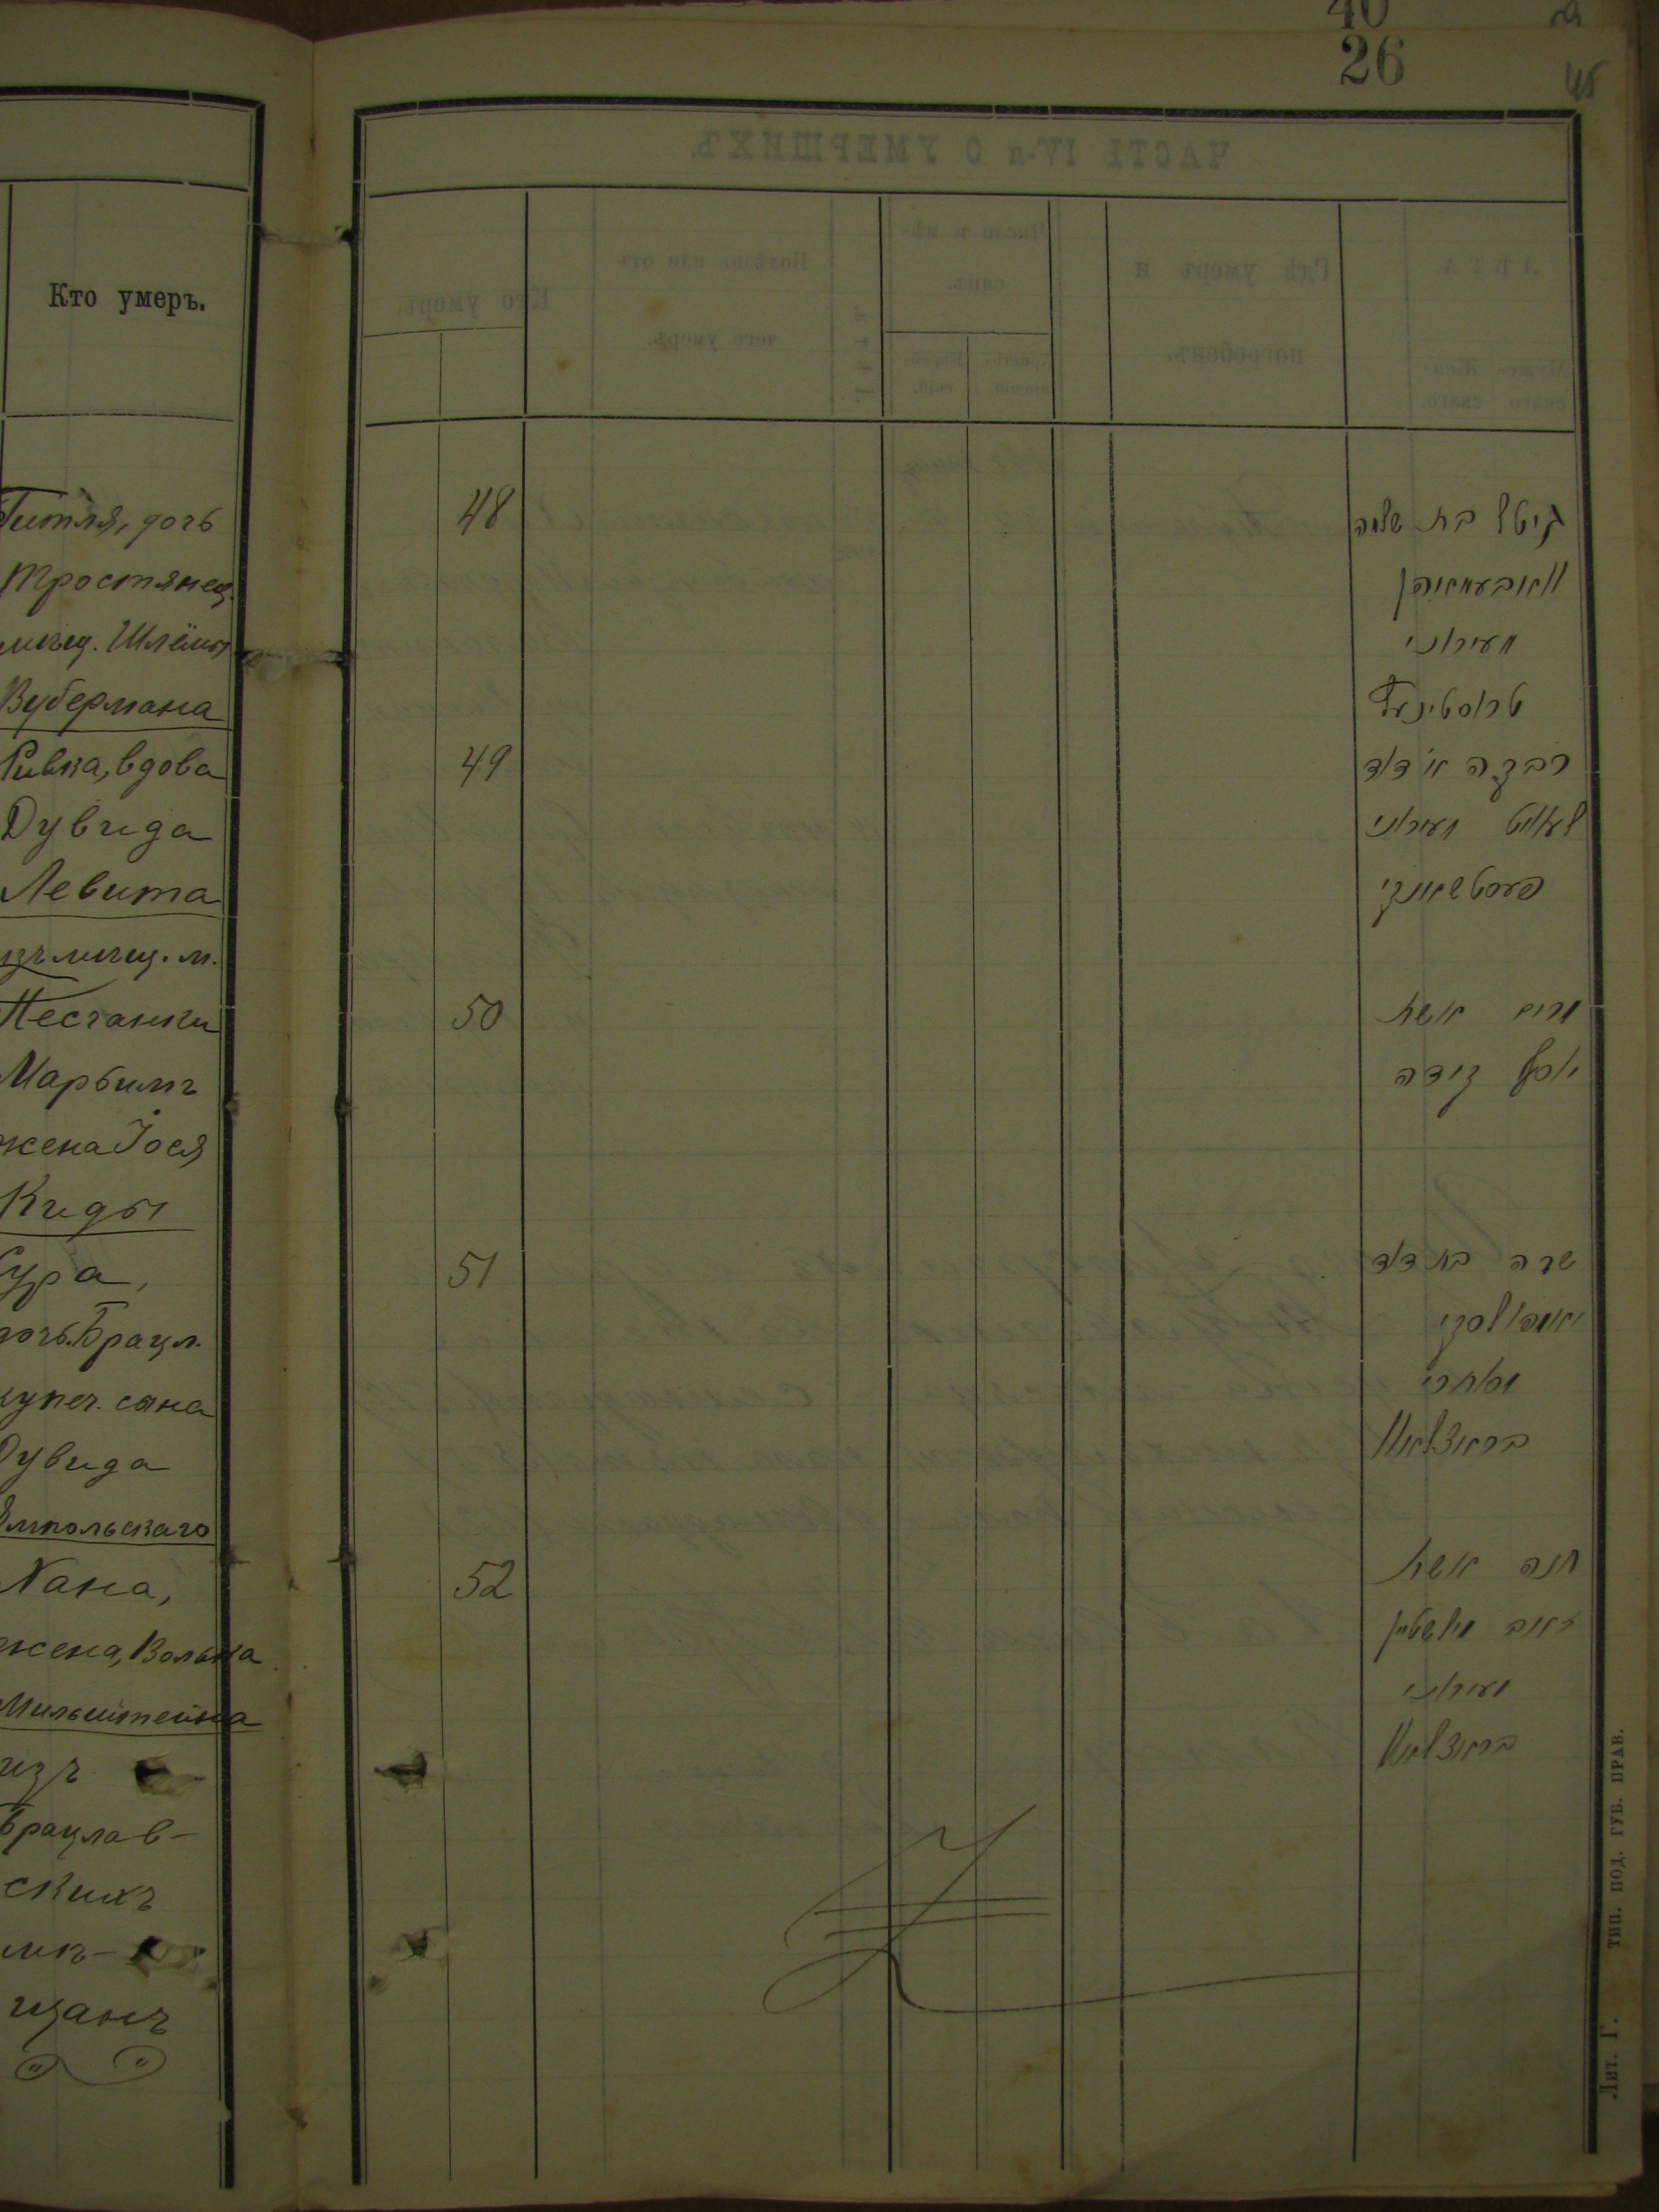 40
26
Кто умеръ.
Гитля, дочь
Тростянец.
мѣщ. Шлёмы
Вубермана
Ривка, вдова
Дувида
Левита
изъ мѣщ. м.
Песчанки
Марьимъ
жена Іося
Киды
Сура,
дочь Брацл.
купеч. сына
Дувида
Ямпольскаго
Хана,
жена, Волька
Мильштейна
изъ
Брацлав-
скихъ
мѣ-
щанъ
ЧАСТЬ IV-я О УМЕРШИХЪ.
Кто умеръ.
Болѣзнь или отъ
чего умеръ.
Число и мѣ-
сяцъ.
Гдѣ умеръ и
погребенъ.
ЛѢТА.
48
גיטל בת שלמה
וואובערמאן
מעירוני
טראסטינעץ
49
רבקה א' דוד
לעוויט מעירוני
פעסטשאנקי
50
מרים אשת
יוסף קידה
51
שרה בת דוד
יאמפאלסקי
מסוחרי
בראצלאוו
52
חנה אשת
זאב מילשטיין
מעירוני
בראצלאוו
Лит. Г. тип. под. губ. прав.